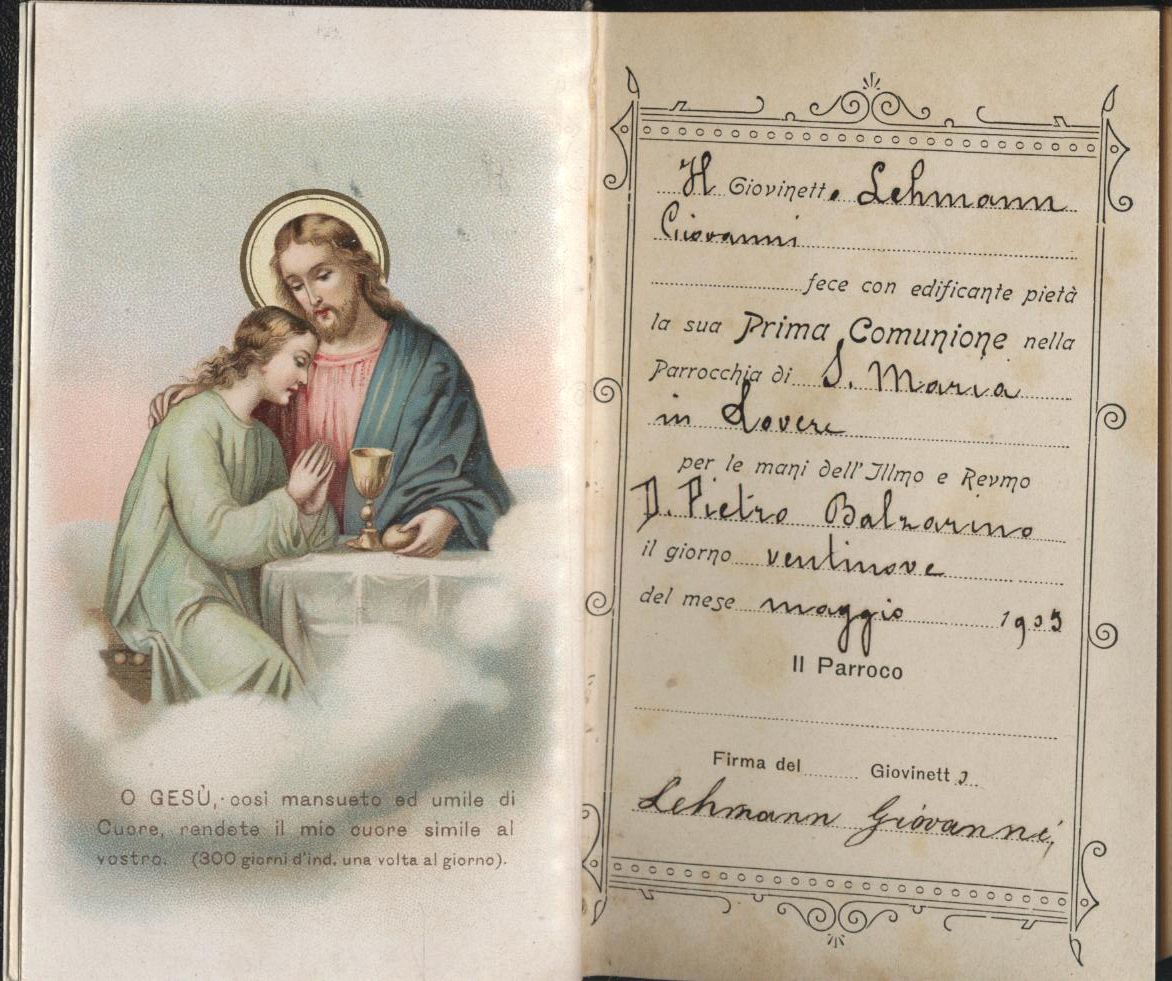 O GESÙ, così mansueto ed umile di
Cuore, rendete il mio cuore simile al
vostro. (300 giorni d'ind. una volta al giorno).
Il Giovinetto Lehmann
Giovanni
fece con edificante pietà
la sua Prima Comunione nella
Parrocchia di S. Maria
in Lovere
per le mani dell'Illmo e Revmo
D. Pietro Balzarino
il giorno ventinove
del mese maggio
Il Parroco
Firma del Giovinetto
Lehmann Giovanni